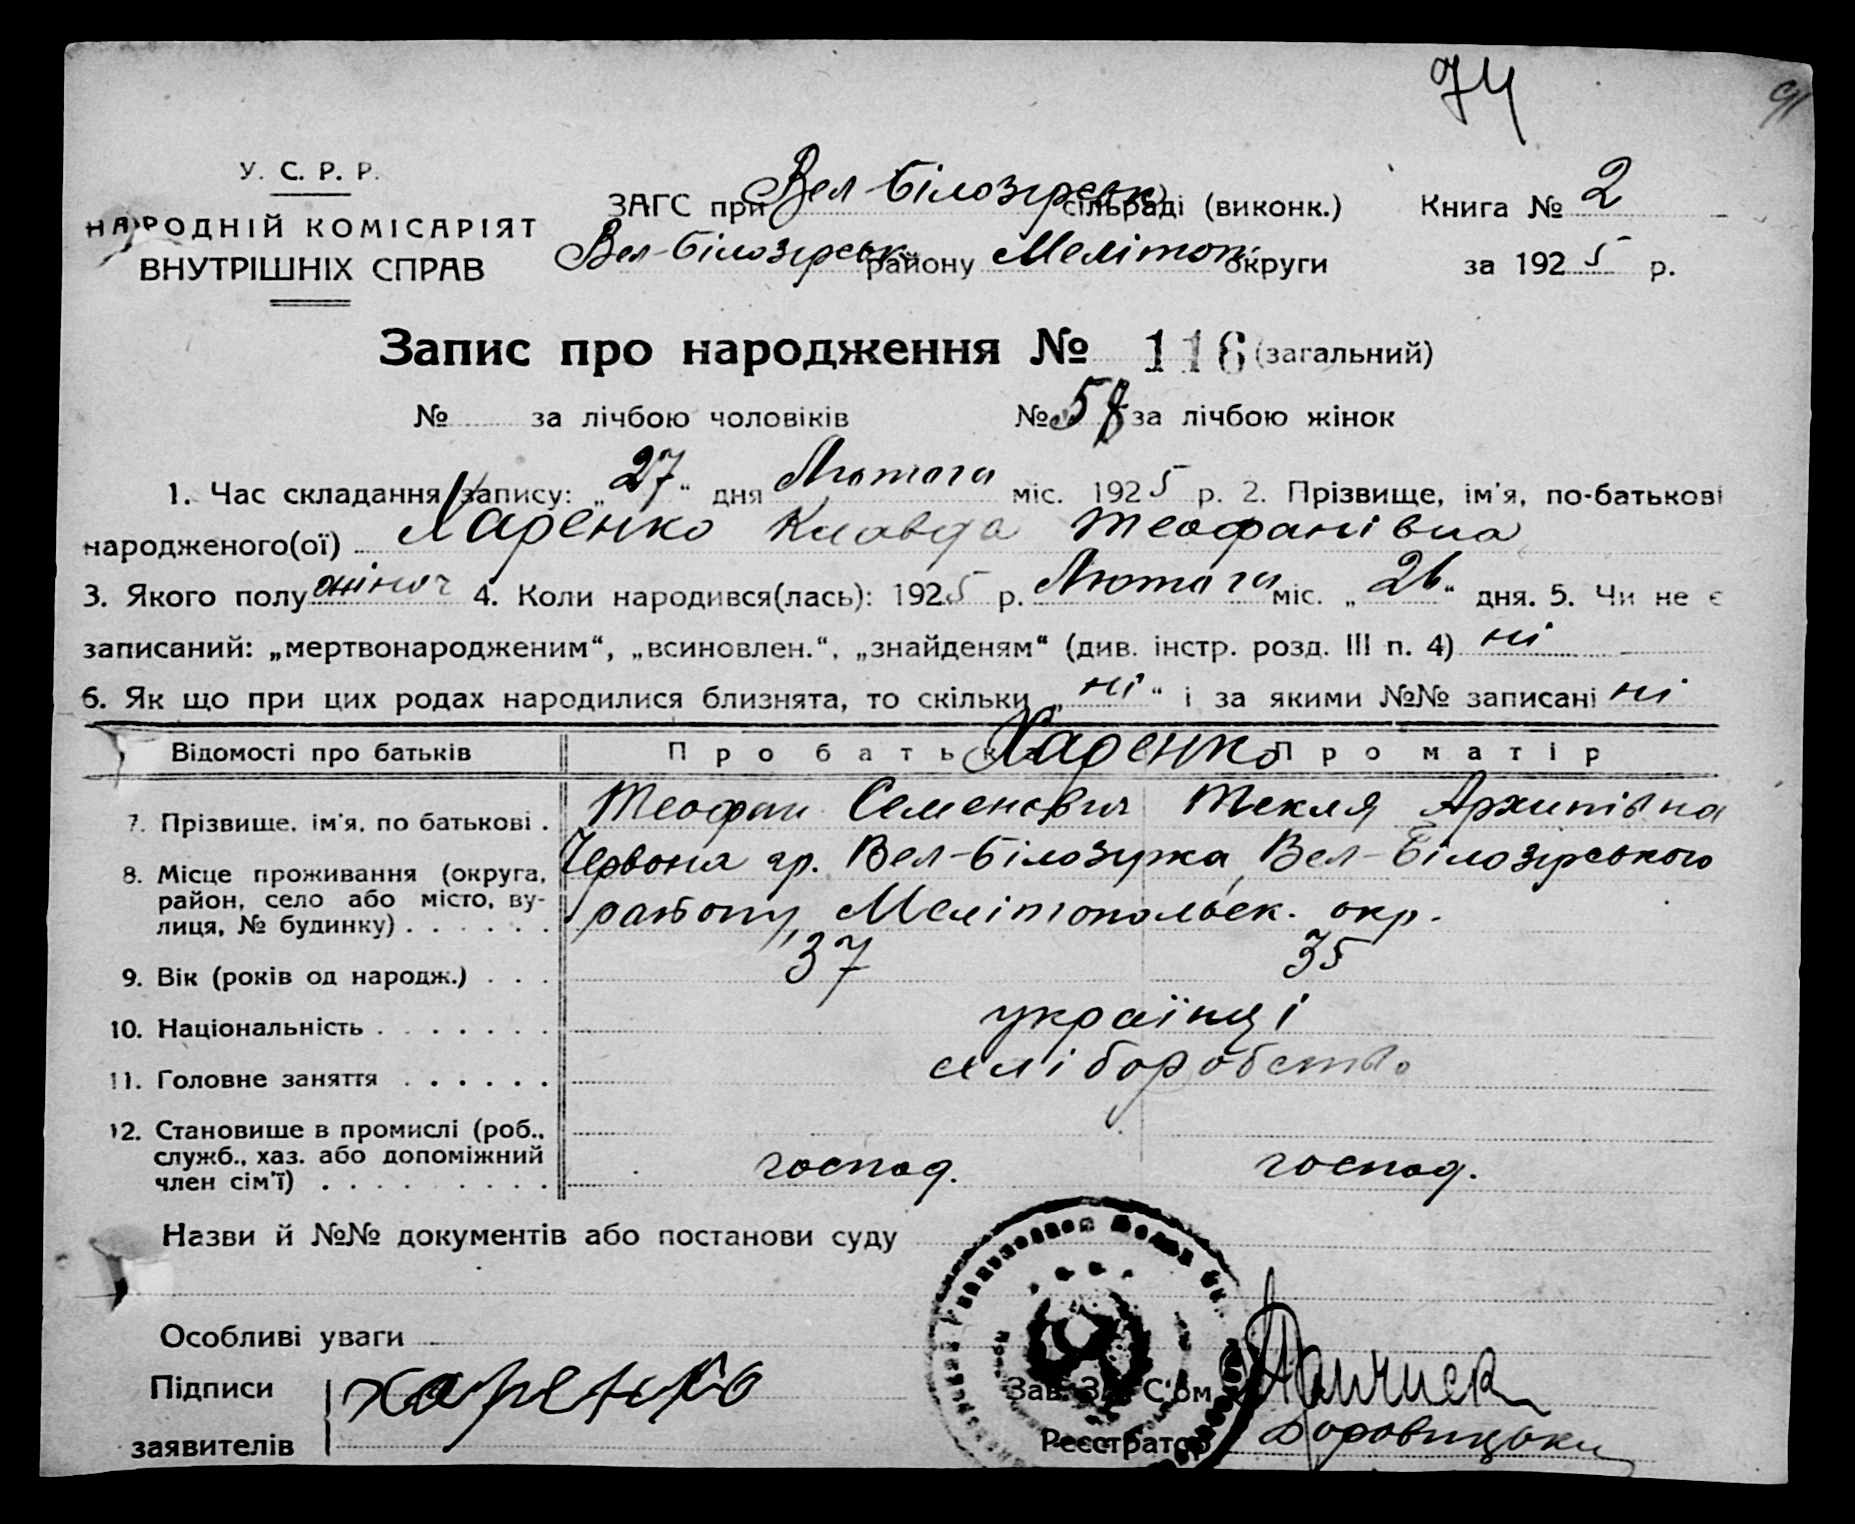 74
91
У. С. Р. Р.
НАРОДНІЙ КОМІСАРІЯТ
ВНУТРІШНІХ СПРАВ
ЗАГС при Вел-Білозірськ сільраді (виконк.)
Вел-Білозірськ району Мелітоп. округи
Книга № 2
за 1925 р.
Запис про народження № 116 (загальний)
№ за лічбою чоловіків № 58 за лічбою жінок
1. Час складання запису: „27“ дня Лютого міс. 1925 р. 2. Прізвище, ім'я, по-батькові
народженого(ої) Харенко Клавда Теофанівна
3. Якого полу жіноч 4. Коли народився(лась): 1925 р. Лютого міс. „26“ дня. 5. Чи не є
записаний: „мертвонародженим“, „всиновлен.“, „знайденям“ (див. інстр. розд. III п. 4) ні
6. Як що при цих родах народилися близнята, то скільки „ні“ і за якими №№ записані ні
Відомості про батьків Про батька Харенко Про матір
7. Прізвище, ім'я, по батькові . Теофан Семенович Текля Архипівна
8. Місце проживання (округа, Червона гр. Вел-Білозірка, Вел-Білозірського
район, село або місто, ву-
лиця, № будинку) . . . . . . району, Мелітопольськ. окр.
9. Вік (років од народж.) . . . 37 35
10. Національність . . . . . . . українці
11. Головне заняття . . . . . . хліборобство
12. Становище в промислі (роб.,
служб., хаз. або допоміжний
член сім'ї) . . . . . . . . . господ. господ.
Назви й №№ документів або постанови суду
Особливі уваги
Підписи
заявителів харенко
Зав. ЗАГС'ом
Реєстратор